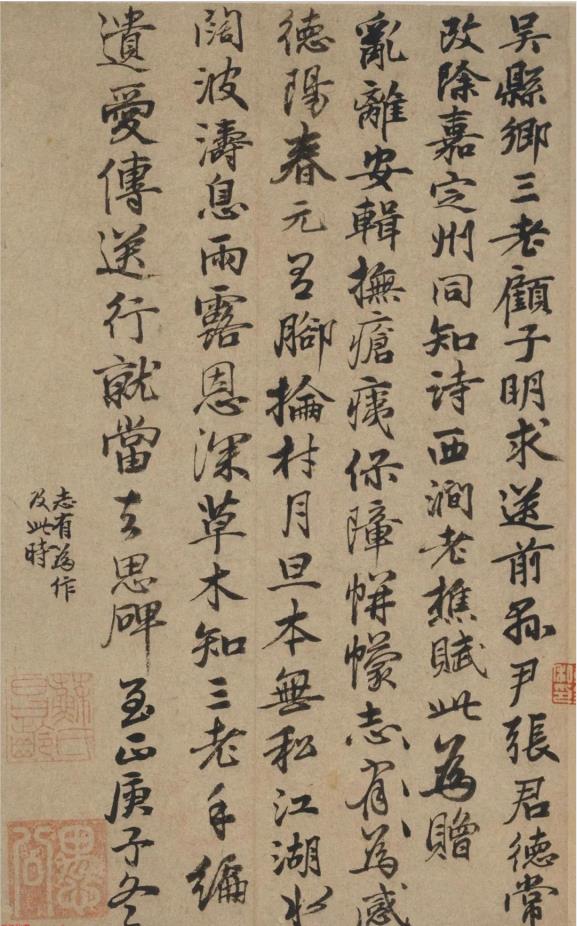 吳縣鄉三老顧子明求送前縣尹張君德常
改除嘉定州同知詩西澗老樵賦此為贈
亂離安輯撫瘡痍保障帡幪志有為感
德陽春元有腳掄材月旦本無私江湖水
闊波濤息雨露恩深草木知三老手編
遺愛傳送行就當去思碑至正庚子冬
志有為作
及此時